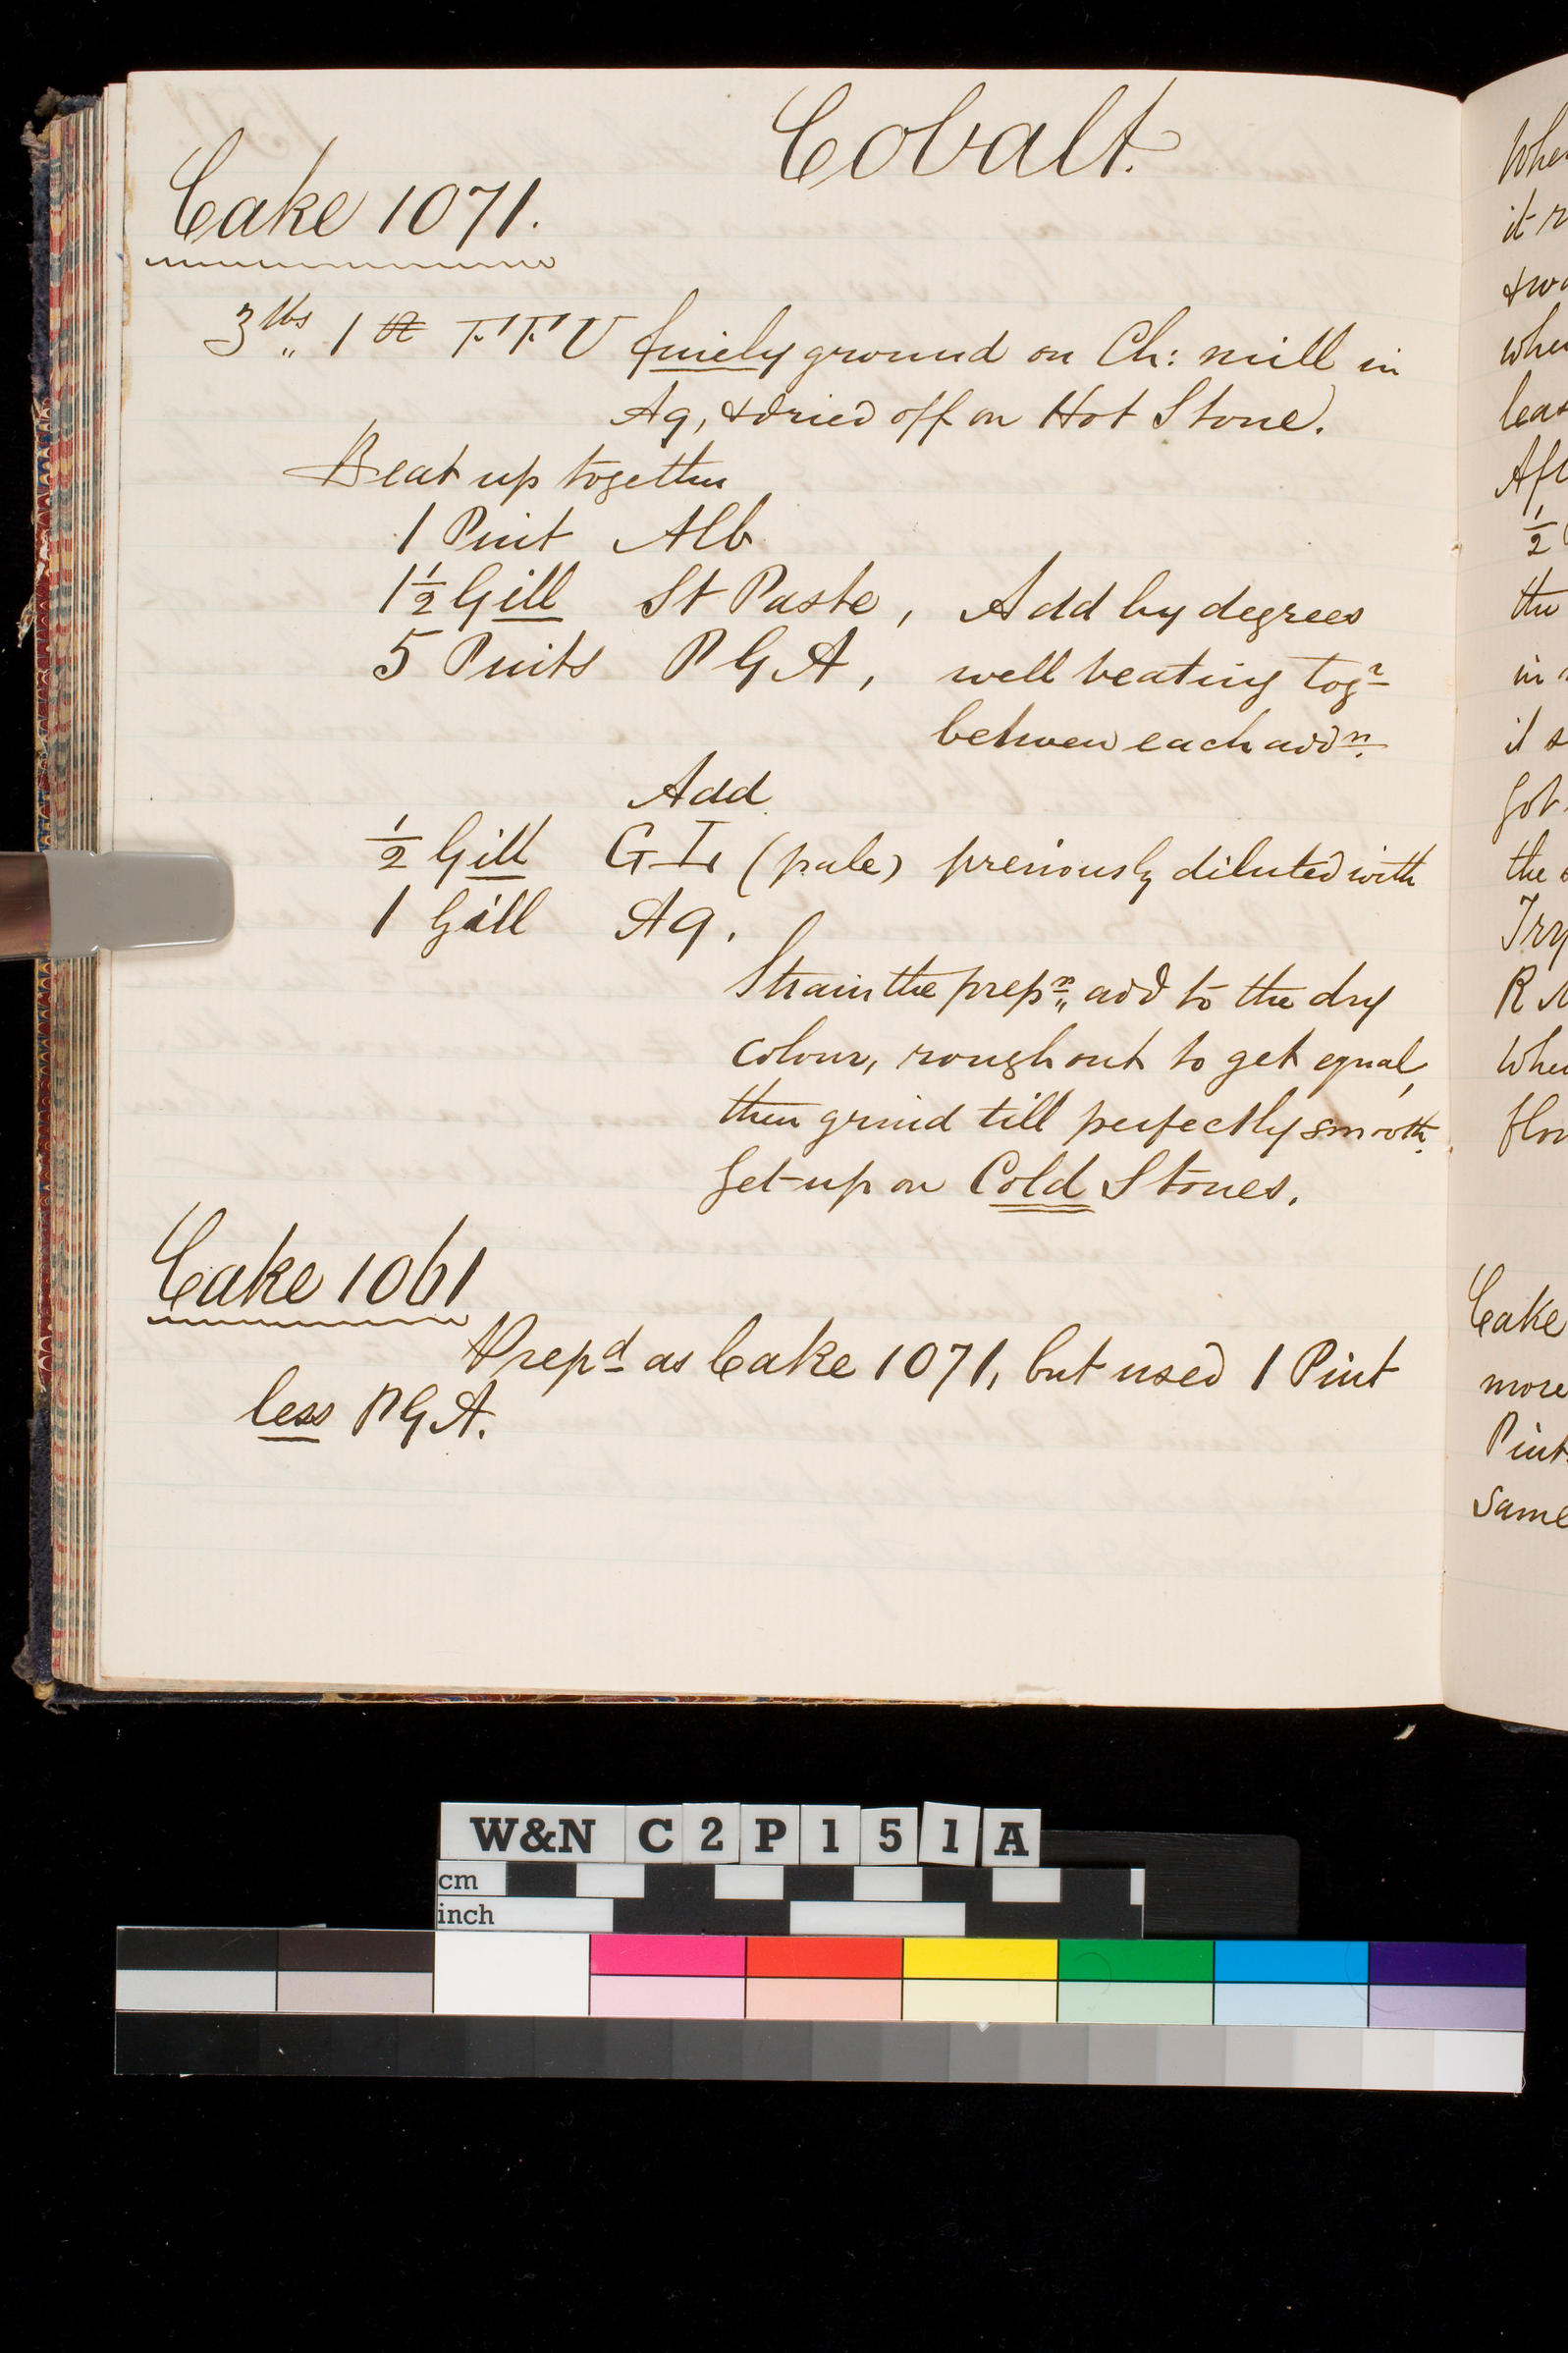 Cobalt.
Cake 1071.
3 lbs 1 F.F.U finely ground on Ch: mill in
Aq, & dried off on Hot Stone.
Beat up together
1 Pint Alb
1½ Gill St Paste, Add by degrees
5 Pints P G A, well beating togr
between each addn.
Add
½ Gill G L (pale) previously diluted with
1 Gill Aq.
Strain the prepn, add to the dry
colour, rough out to get equal,
then grind till perfectly smooth.
Get-up on Cold Stones.
Cake 1061
Prepd as Cake 1071, but used 1 Pint
less P G A.
it
the
in
got
the
Try
R
Cake
more
Pint
same
W&N C2P151A
cm
inch